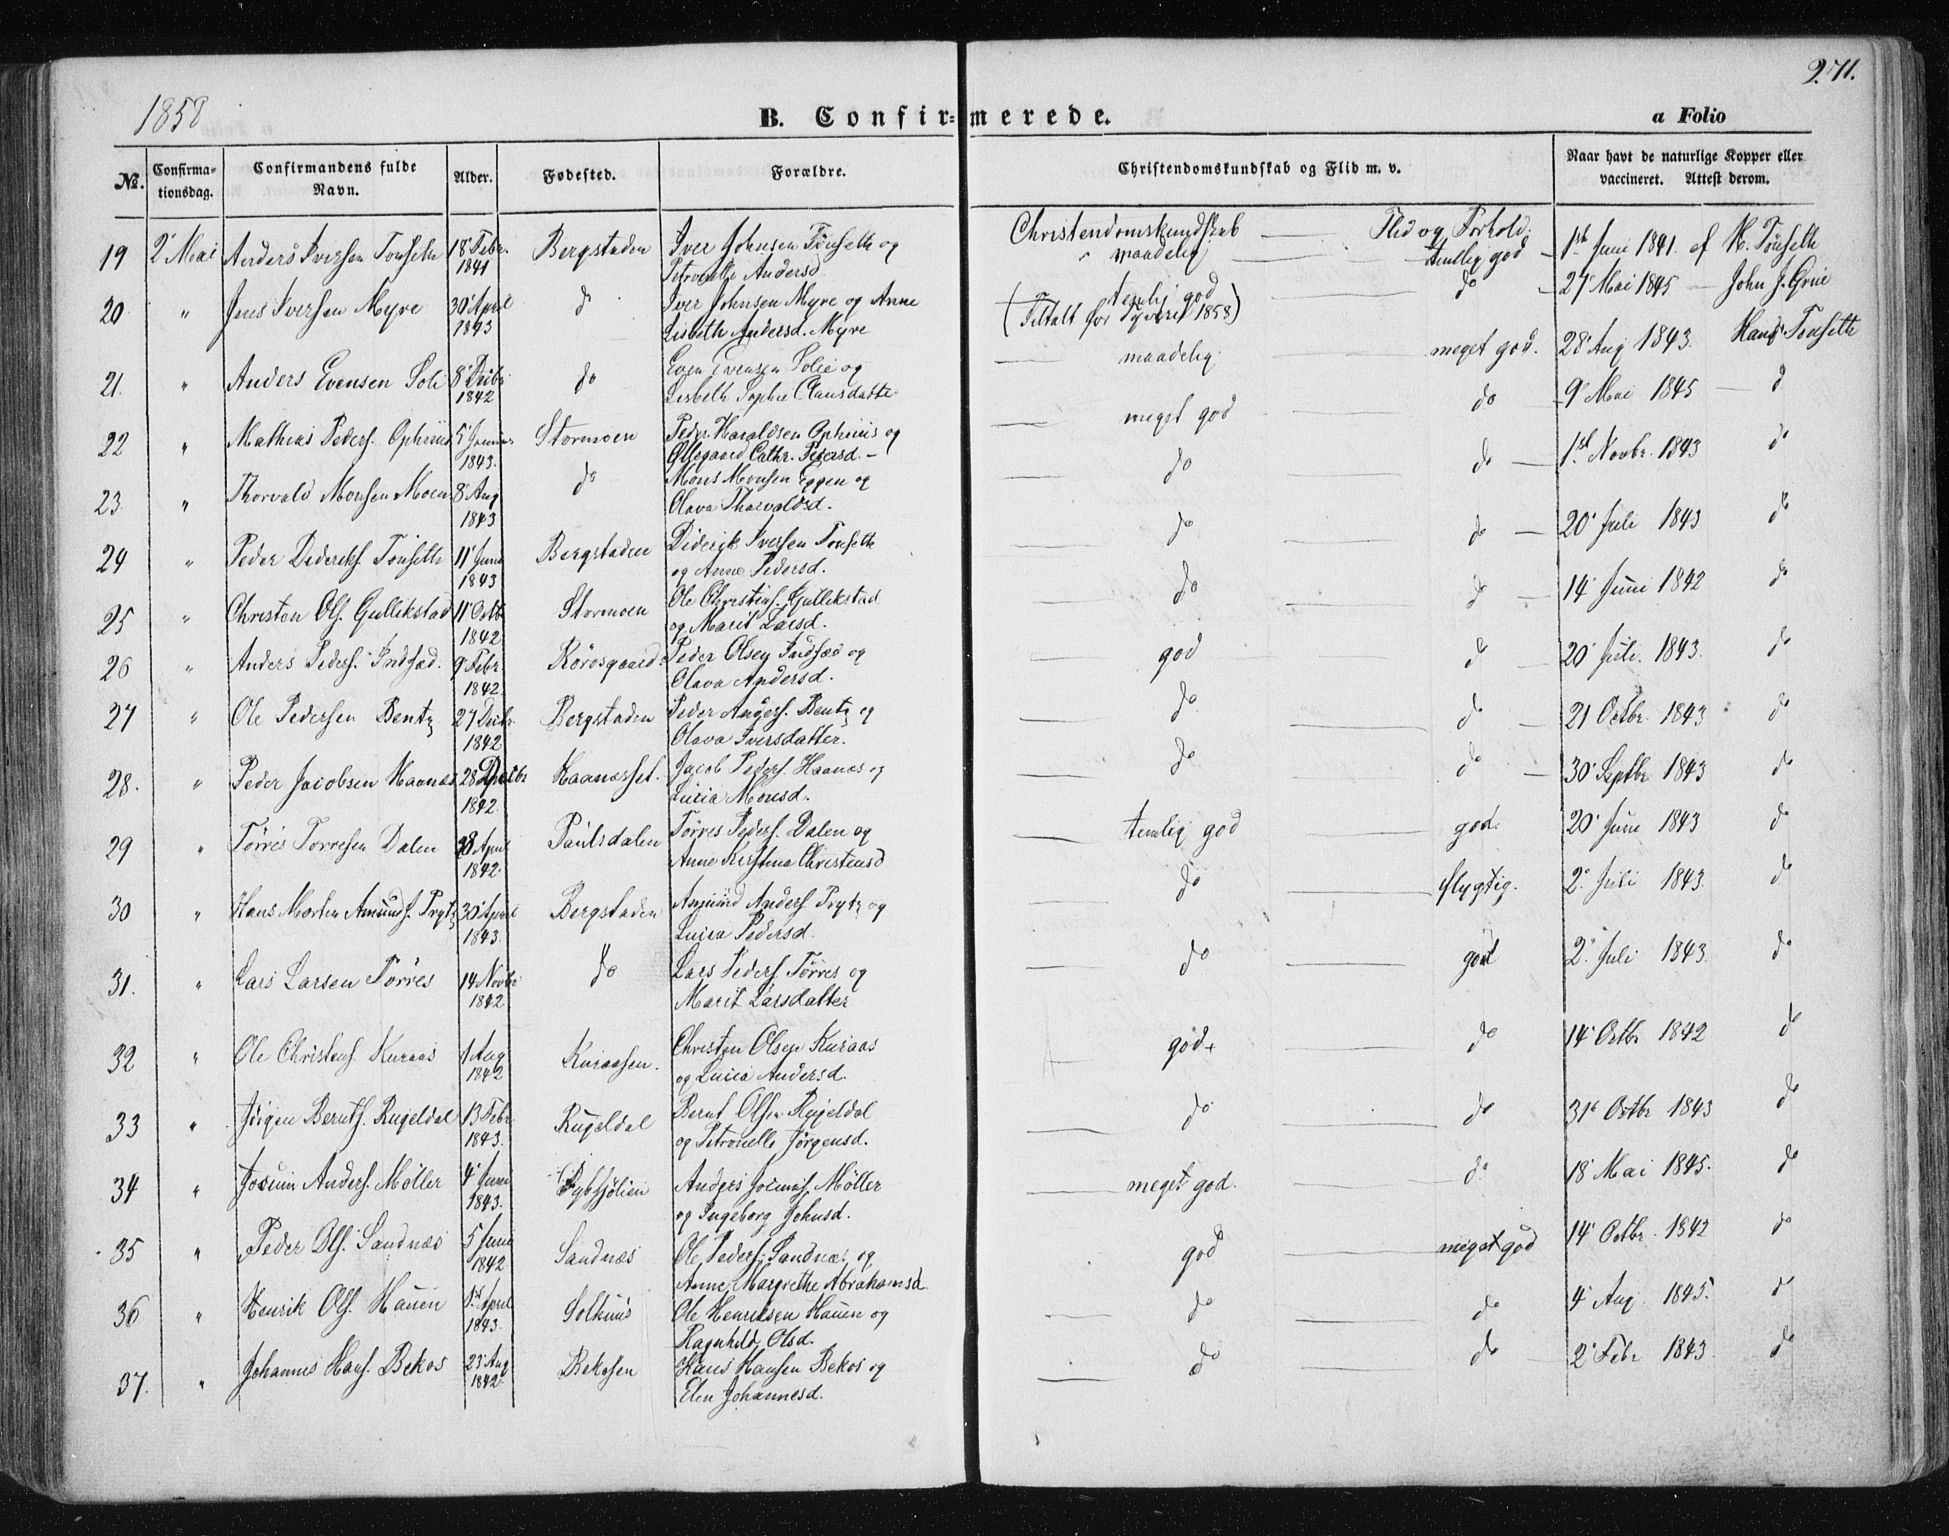 1858
B. Confirmerede.
271.
a Folio
№.
Confirmationsdag.
Confirmandens fulde Navn.
Alder.
Fødested.
Forældre.
Christendomskundskab og Flid m. v.
Naar havt de naturlige Kopper eller vaccineret. Attest derom.
Christendomskundskab — Flid og Forhold.
19 2' Mai Anders Iversen Tønseth 18' Febr. 1841 Bergstaden Iver Johnsen Tønseth og Petronelle Andersd maadelig — temlig god — 1st Juni 1841. af H. Tønseth
20 " Jens Iversen Myre 30' April 1843 do Iver Johnsen Myre og Anne Lisbeth Andersd. Myre temlig god (Tiltalt for Tyveri 1858) do — 27' Mai 1845 — John J. Grue
21. " Anders Evensen Soli 8' Decbr 1842 do Even Evensen Solie og Lisbeth Sophie Clausdatter maadelig meget god. 28' Aug 1843. Hans Tønseth
22 " Mathias Peders. Ophuus 5' 1843. Stormoen Peder Haraldsen Ophuus og Ollegaard Cathr. Pedersd. — meget god — do — 9' Mai 1845 — do
23 " Thorvald Monsen Moen 8' Aug 1843 do Mons Monsen Eggen og Olava Thorvaldsd. do do — 1st Novbr. 1843 do
24 " Peder Dideriks. Tønseth 11' Juni 1843 Bergstaden Diderik Iversen Tønseth og Anne Pedersd. do do — 20' Juli 1843 do
25 " Christen Ols. Gullikstad 11' Octb 1842 Stormoen Ole Christens. Gullikstad og Marit Larsd. do do — 14' Juni 1842 do
26 " Anders Peders. Indset. 9' Febr 1842. Rørosgaard Peder Olsen Indset og Olava Andersd. god do 20' Juli. 1843. do
27 " Ole Pedersen Bentz 27' Decbr 1842 Bergstaden Peder Anders. Bentz og Olava Iversdatter. do do — 21 Octbr 1843 do
28. " Peder Jacobsen Haanæs 28' Decbr 1842. Haanæsset. Jacob Peders. Haanæs og Lucia Monsd. do do — 30' Septbr 1843 do
29 " Tørres Torresen Dalen 28 April 1842. Paulsdalen Tørres Peders. Dalen og Anne Kirstina Christensd temlig god god. 20' Juni 1843 do
30 " Hans Morten Amunds. Prytz 30' April 1843. Bergstaden Amund Anders. Prytz og Lucia Pedersd. do flygtig. 2' Juli 1843. do
31. " Lars Larsen Tørres 14' Novbr 1842 do Lars Peders. Tørres og Marit Larsdatter do god 2' Juli 1843. do
32 " Ole Christens. Kuraas 1 Aug 1842 Kuraasen. Christen Olsen Kuraas og Lucia Andersd. god do 14' Octbr 1842 do
33 " Jørgen Bernts. Rugeldal 13 Febr. 1843. Rugeldal Bernt Olsen Rugeldal og Petronelle Jørgensd. do do 31' Octbr 1843 do
34 " Jocum Anders. Møller 4' Juni 1843. Anders Jocums. Møller og Ingeborg Johnsd. meget god. do 18' Mai 1845. do
35 " Peder Ols. Sandnæs 5' Juni 1842 Sandnæs Ole Peders. Sandnæs og Anne Margrethe Abrahamsd god meget god 14' Octbr. 1842 do
36 " Henrik Ols. Hauen 1st April 1843. Solhuus Ole Henriksen Hauen og Ragnhild Olsd. do do 4' Aug 1845. do
37. " Johannes Hans. Bekos 23' Aug 1842. Bekosen Hans Hansen Bekos og Elen Johannesd. do do 2' Febr 1843. do